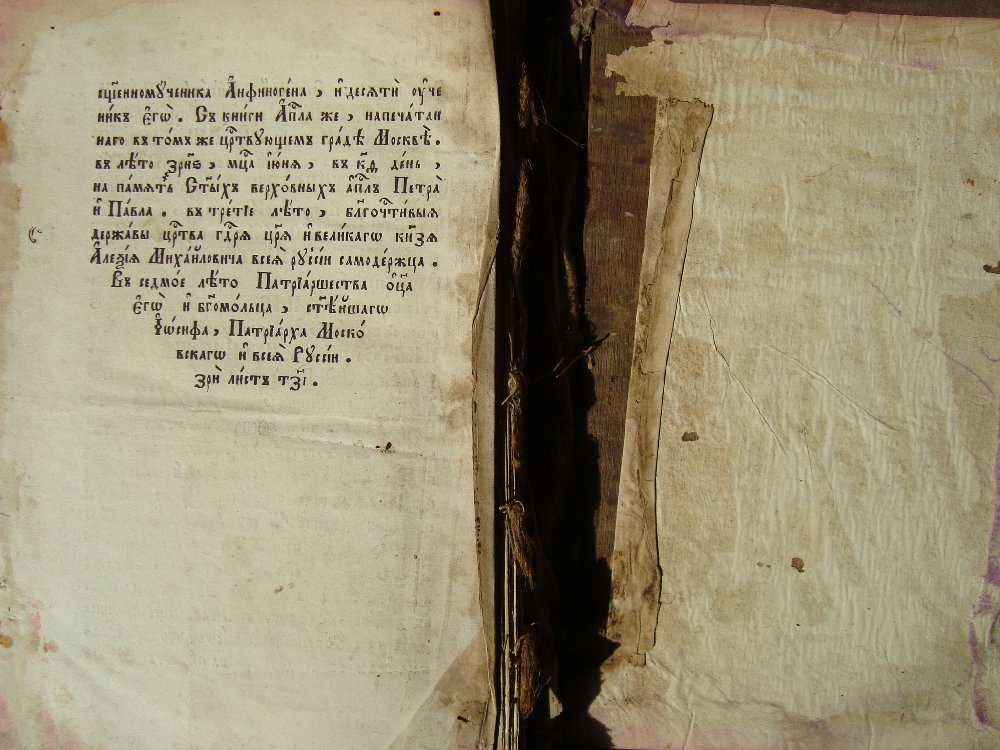 сщ҃енномꙋ́ченика А҆нфиногéна , и҆ десятѝ оу҆че
никъ є҆гѡ̀ . Съ книги А҆пⷭ҇ла же , напечáтан
наго въ тóмъ же црⷭ҇твующемъ грáдѣ Москвѣ̀ .
въ лѣ́то ҂зрн҃ѕ , мцⷭ҇а і҆ю́ня , въ к҃ѳ дéнь ,
на пáмять Ст҃ы́хъ верхóвныхъ а҆пⷭ҇лъ Петрà
и҆ Пáвла . въ трéтїе лѣ́то , бл҃гочти́выя
держáвы црⷭ҇тва гдⷭ҇ря цр҃я̀ и҆ вели́кагѡ кн҃зя
А҆леѯі́я Михáйловича всея̀ русі́и самодéржца .
Въ седмóе лѣ́то Патрїáршества ѻ҆ц҃а
є҆гѡ̀ и҆ бг҃омóльца , ст҃ѣ́йшагѡ
І҆ѡ́сифа , Патрїáрха Москó
вскагѡ и҆ всея̀ Русі́и .
зрѝ ли́стъ тз҃і .